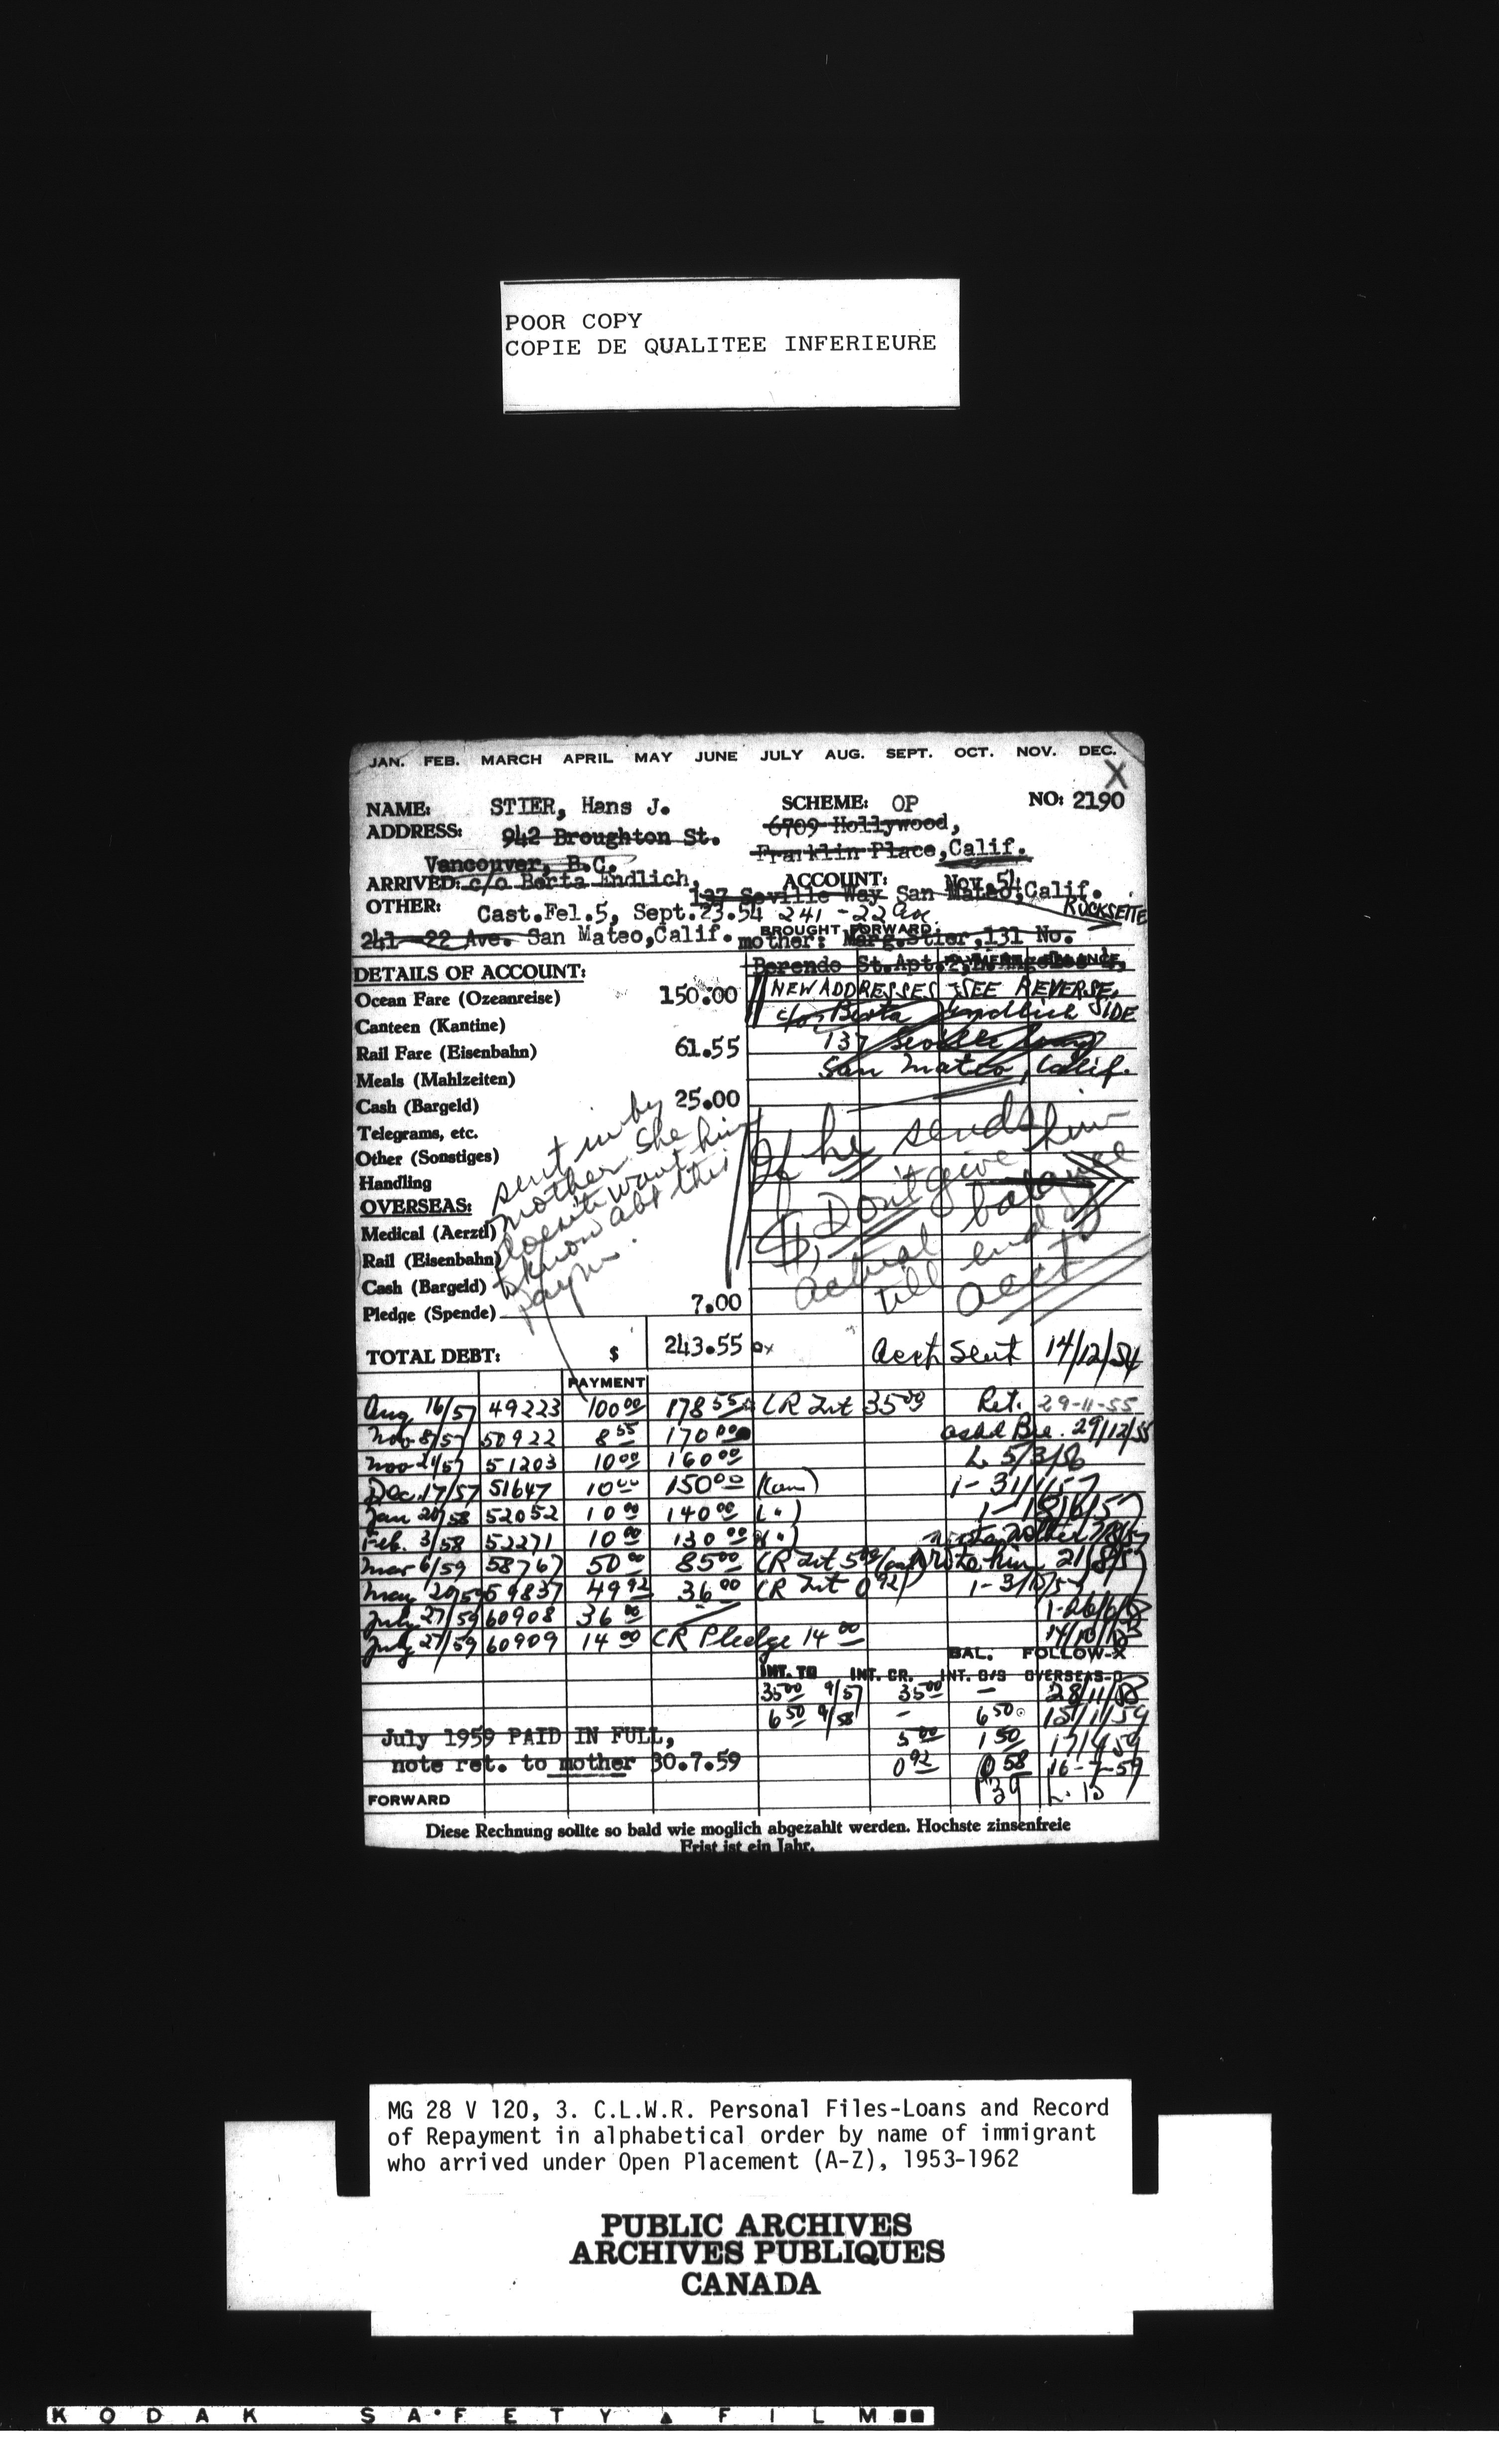 POOR COPY
COPIE DE QUALITEE INFERIEURE
JAN. FEB. MARCH APRIL MAY JUNE JULY AUG. SEPT. OCT. NOV. DEC.
X
NAME: STIER, Hans J. SCHEME: OP NO: 2190
ADDRESS: 942 Broughton St. 6709 Hollywood,
Vancouver, B.C. Franklin Place, Calif.
ARRIVED: c/o Berta Endlich, ACCOUNT: Nov. 54
137 Seville Way San Mateo, Calif.
OTHER: Cast.Fel.5, Sept.23.54 241 - 22 Ave RÜCKSEITE
241-22 Ave. San Mateo,Calif. BROUGHT FORWARD
mother: Marg.Stier, 131 No.
DETAILS OF ACCOUNT: Berendo St.Apt.
Ocean Fare (Ozeanreise) 150.00 NEW ADDRESSES SEE REVERSE
Canteen (Kantine) c/o, Berta Endlich SIDE
Rail Fare (Eisenbahn) 61.55 137 Seville Way
Meals (Mahlzeiten) San Mateo, Calif.
Cash (Bargeld) 25.00
Telegrams, etc.
Other (Sonstiges)
Handling
OVERSEAS:
Medical (Aerztl)
Rail (Eisenbahn)
Cash (Bargeld)
Pledge (Spende) 7.00
sent in by
mother. She
doesn't want him
to know abt this
paym.
If he sends
$, Don't give him
actual balance
till end of
acct
TOTAL DEBT: $ 243.55 Acct sent 14/12/54
PAYMENT
Aug 16/57 49223 100 00 178 55 CR Int 35 00 Ret. 29-11-55
Nov 8/57 50922 8 55 170 00 29/12/55
Nov 21/57 51203 10 00 160 00 L 5/3/56
Dec. 17/57 51647 10 00 150 00 1- 31/1/57
Jan 20/58 52052 10 00 140 00 (") 1- 18/6/57
Feb. 3/58 52271 10 00 130 00 (")
Mar 6/59 58767 50 00 85 00 CR Int 5 00 wrote him 21/8/57
May 20/59 59837 49 92 36 00 CR Int 0 92
July 27/59 60908 36 00
July 27/59 60909 14 00 CR Pledge 14 00
BAL. FOLLOW-X
INT. TO INT. CR. INT. O/S OVERSEAS-O
35 00 9/57 35 00 — 28/11/58
6 50 9/58 - 6 50 15/1/59
July 1959 PAID IN FULL, 5 00 1 50 17/4/59
note ret. to mother 30.7.59 0 92 0 58 16-7-59
FORWARD
Diese Rechnung sollte so bald wie moglich abgezahlt werden. Hochste zinsenfreie
Frist ist ein Jahr.
MG 28 V 120, 3. C.L.W.R. Personal Files-Loans and Record
of Repayment in alphabetical order by name of immigrant
who arrived under Open Placement (A-Z), 1953-1962
PUBLIC ARCHIVES
ARCHIVES PUBLIQUES
CANADA
KODAK SAFETY FILM